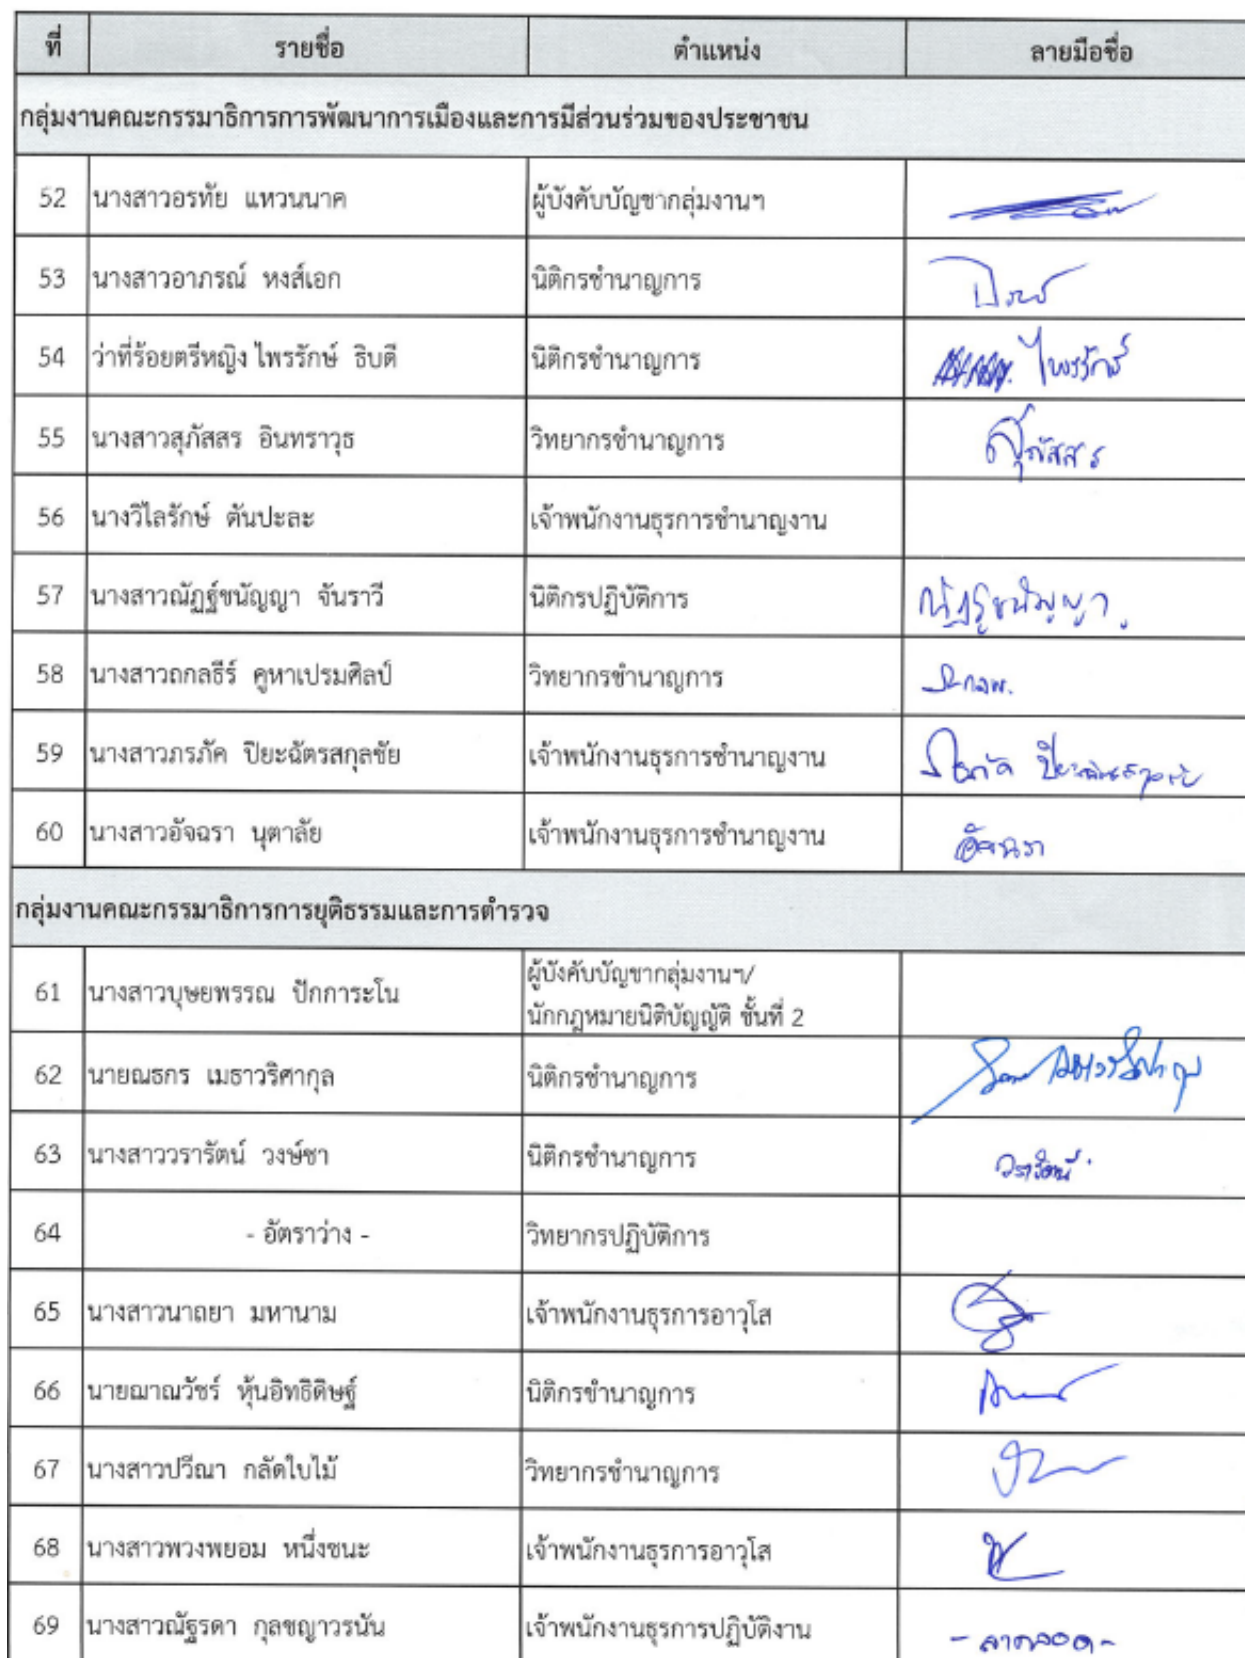 ที่ รายชื่อ ตำแหน่ง ลายมือชื่อ
กลุ่มงานคณะกรรมาธิการการพัฒนาการเมืองและการมีส่วนร่วมของประชาชน
52 นางสาวอรทัย แหวนนาค ผู้บังคับบัญชากลุ่มงานฯ
53 นางสาวอาภรณ์ หงส์เอก นิติกรชำนาญการ
54 ว่าที่ร้อยตรีหญิง ไพรรักษ์ ธิบดี นิติกรชำนาญการ ไพรรักษ์
55 นางสาวสุภัสสร อินทราวุธ วิทยากรชำนาญการ สุภัสสร
56 นางวิไลรักษ์ ตันปะละ เจ้าพนักงานธุรการชำนาญงาน
57 นางสาวณัฏฐ์ชนัญญา จันราวี นิติกรปฏิบัติการ ณัฏฐ์ชนัญญา
58 นางสาวถกลธีร์ คูหาเปรมศิลป์ วิทยากรชำนาญการ
59 นางสาวภรภัค ปิยะฉัตรสกุลชัย เจ้าพนักงานธุรการชำนาญงาน ภรภัค ปิยะฉัตรสกุลชัย
60 นางสาวอัจฉรา นุตาลัย เจ้าพนักงานธุรการชำนาญงาน อัจฉรา
กลุ่มงานคณะกรรมาธิการการยุติธรรมและการตำรวจ
61 นางสาวบุษยพรรณ ปักการะโน ผู้บังคับบัญชากลุ่มงานฯ/
นักกฎหมายนิติบัญญัติ ชั้นที่ 2
62 นายณธกร เมธาวริศากุล นิติกรชำนาญการ
63 นางสาววรารัตน์ วงษ์ชา นิติกรชำนาญการ วรารัตน์
64 - อัตราว่าง - วิทยากรปฏิบัติการ
65 นางสาวนาถยา มหานาม เจ้าพนักงานธุรการอาวุโส
66 นายฌาณวัชร์ หุ้นอิทธิดิษฐ์ นิติกรชำนาญการ
67 นางสาวปวีณา กลัดใบไม้ วิทยากรชำนาญการ
68 นางสาวพวงพยอม หนึ่งชนะ เจ้าพนักงานธุรการอาวุโส
69 นางสาวณัฐรดา กุลชญาวรนัน เจ้าพนักงานธุรการปฏิบัติงาน - ลาคลอด -